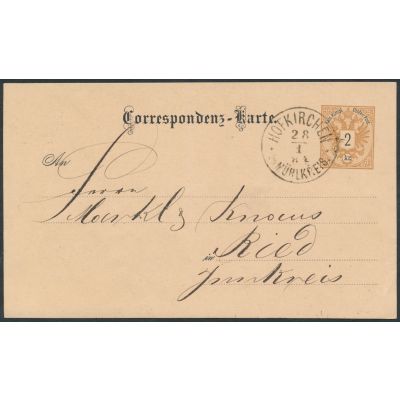 Correspondenz-Karte.
HOFKIRCHEN
28
1
84
MÜHLKREIS.
2
KR.
An
Herrn
Markl & Knaus
in Ried
Innkreis